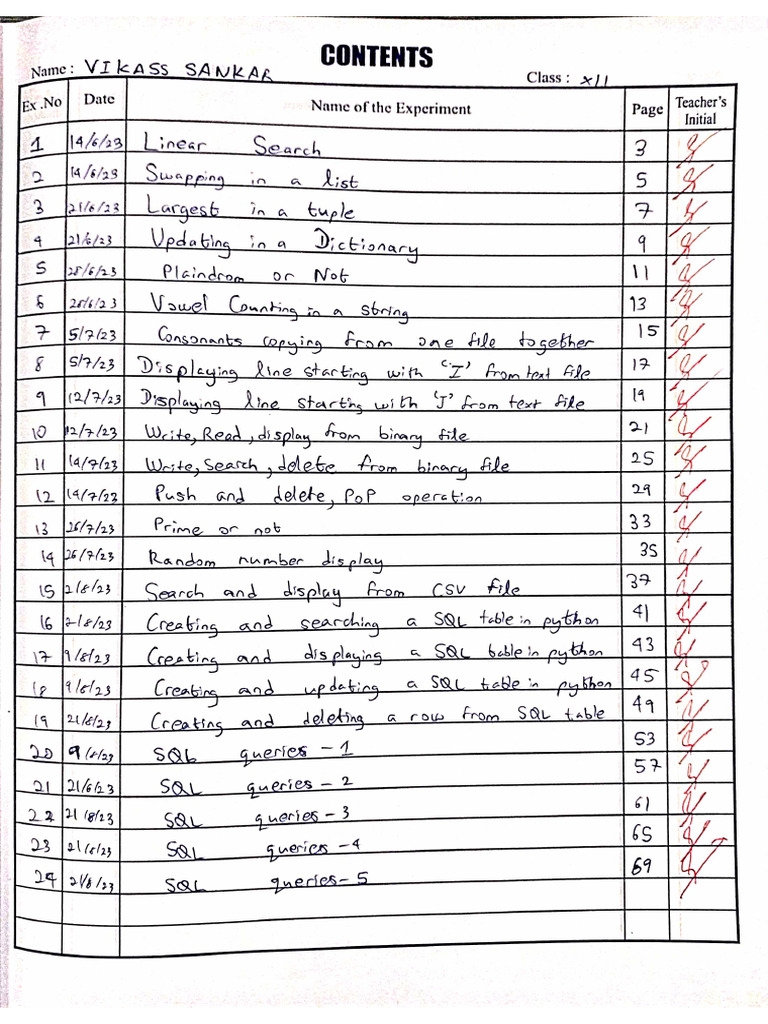 CONTENTS
Name : VIKASS SANKAR Class : XII
Ex .No Date Name of the Experiment Page Teacher's Initial
1 14/6/23 Linear Search 3
2 14/6/23 Swapping in a list 5
3 21/6/23 Largest in a tuple 7
4 21/6/23 Updating in a Dictionary 9
5 28/6/23 Plaindrom or Not 11
6 28/6/23 Vowel Counting in a string 13
7 5/7/23 Consonants copying from one file together 15
8 5/7/23 Displaying line starting with 'I' from text file 17
9 12/7/23 Displaying line starting with 'J' from text file 19
10 12/7/23 Write, Read, display from binary file 21
11 14/7/23 Write, Search, delete from binary file 25
12 14/7/23 Push and delete, PoP operation 29
13 26/7/23 Prime or not 33
14 26/7/23 Random number display 35
15 2/8/23 Search and display from CSV file 37
16 2/8/23 Creating and searching a SQL table in python 41
17 9/8/23 Creating and displaying a SQL table in python 43
18 9/8/23 Creating and updating a SQL table in python 45
19 21/8/23 Creating and deleting a row from SQL table 49
20 9/8/23 SQL queries - 1 53
21 21/6/23 SQL queries - 2 57
22 21/8/23 SQL queries - 3 61
23 21/8/23 SQL queries - 4 65
24 21/8/23 SQL queries - 5 69